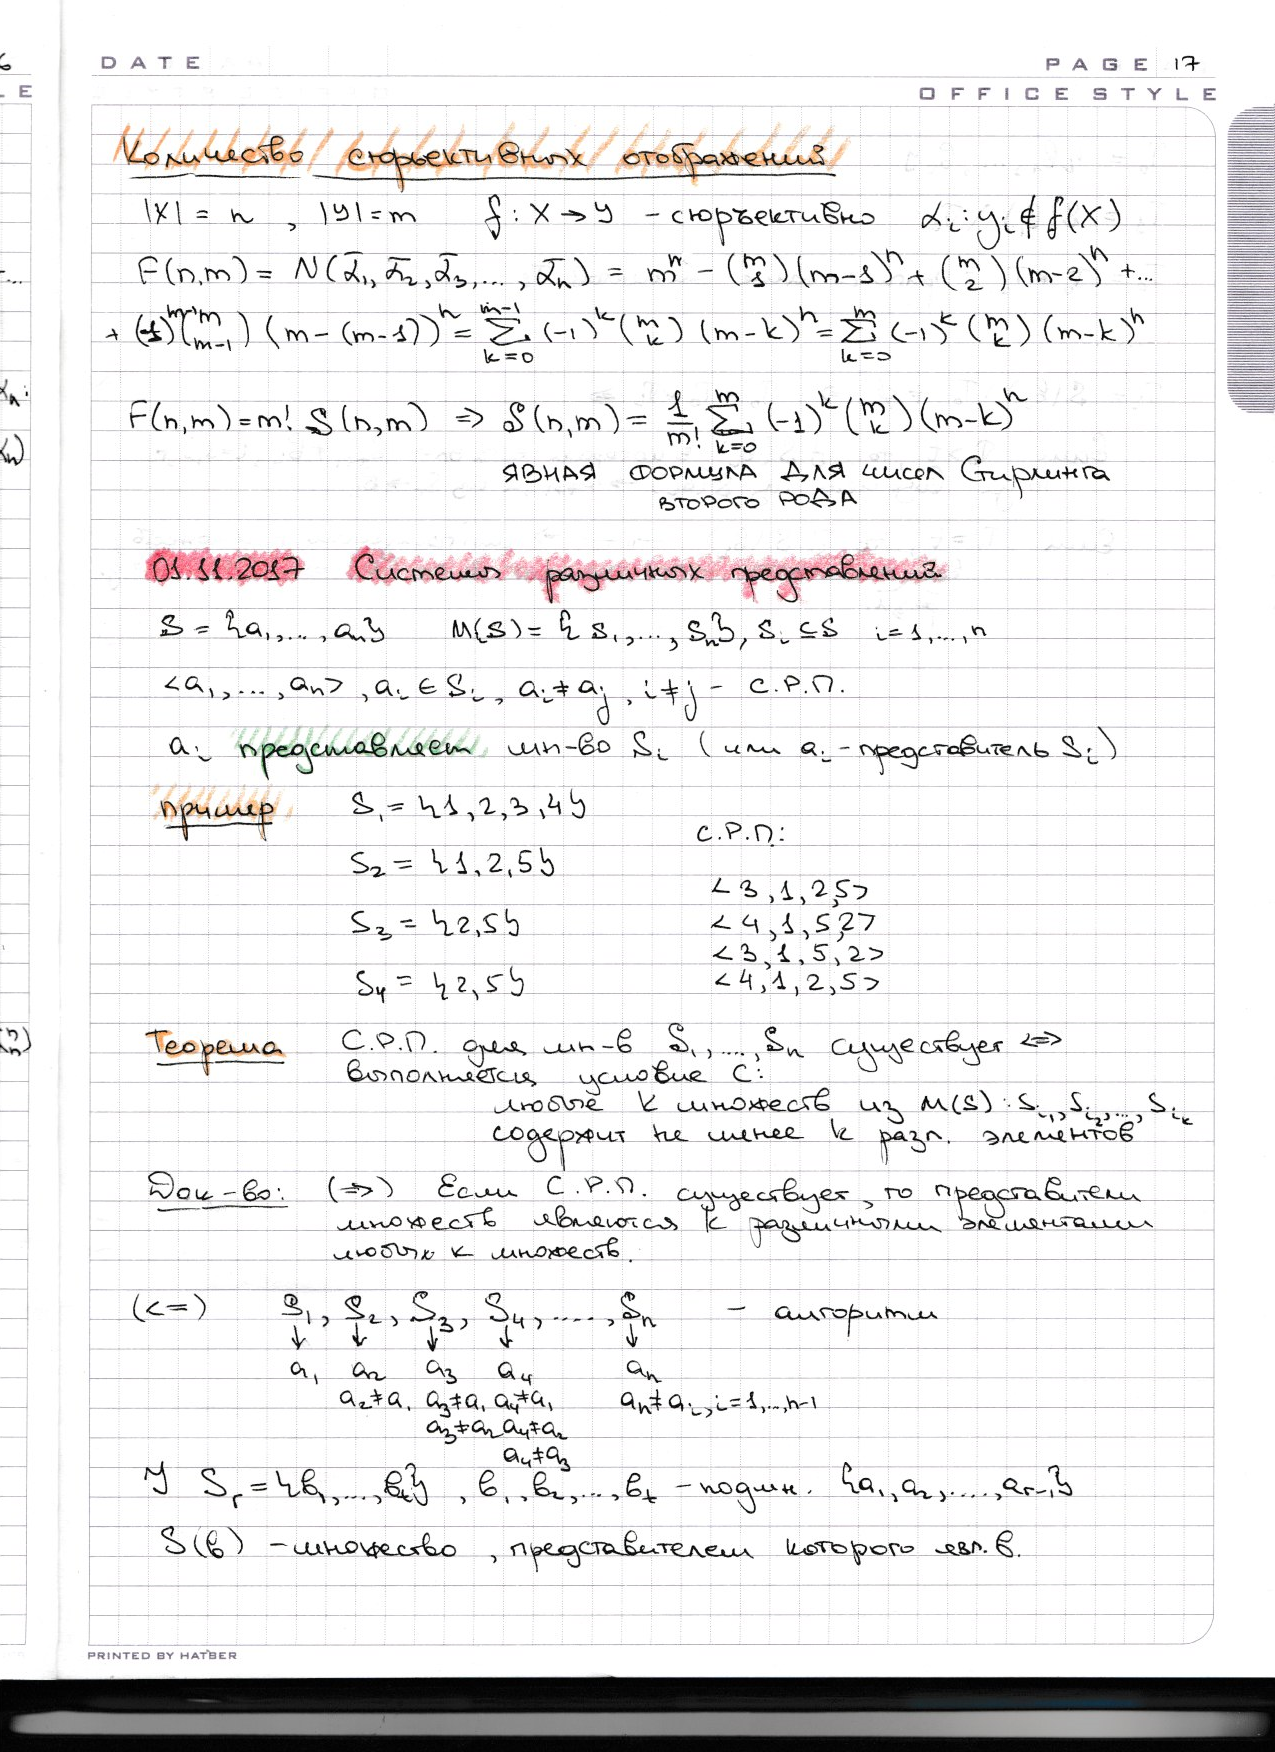 6
DATE
PAGE 17
LE
OFFICE STYLE
Количество сюрьективных отображений
|X| = n , |Y| = m f : X → Y - сюръективно αᵢ : yᵢ ∉ f(X)
F(n,m) = N(ᾱ₁, ᾱ₂, ᾱ₃, ..., ᾱₙ) = mⁿ - (m 1)(m-1)ⁿ + (m 2)(m-2)ⁿ + ...
+ (-1)ᵐ⁻¹(m m-1)(m-(m-1))ⁿ = ∑_{k=0}^{m-1} (-1)ᵏ (m k) (m-k)ⁿ = ∑_{k=0}^{m} (-1)ᵏ (m k) (m-k)ⁿ
F(n,m) = m! S(n,m) => S(n,m) = 1/m! ∑_{k=0}^{m} (-1)ᵏ (m k) (m-k)ⁿ
ЯВНАЯ ФОРМУЛА ДЛЯ чисел Стирлинга
ВТОРОГО РОДА
01.11.2017 Системы различных представлений
S = {a₁, ..., aₙ} M(S) = {S₁, ..., Sₙ}, Sᵢ ⊆ S i = 1, ..., n
<a₁, ..., aₙ>, aᵢ ∈ Sᵢ, aᵢ ≠ aⱼ, i ≠ j - С.Р.П.
aᵢ представляет мн-во Sᵢ (или aᵢ - представитель Sᵢ)
пример S₁ = {1, 2, 3, 4}
С.Р.П:
S₂ = {1, 2, 5}
<3, 1, 2, 5>
S₃ = {2, 5}
<4, 1, 5, 2>
<3, 1, 5, 2>
S₄ = {2, 5}
<4, 1, 2, 5>
Теорема С.Р.П. для мн-в S₁, ..., Sₙ существует <=>
выполняется условие С:
любые k множеств из M(S): S_{i₁}, S_{i₂}, ..., S_{iₖ}
содержит не менее k разл. элементов
Док-во: (=>) Если С.Р.П. существует, то представители
множеств являются k различными элементами
любых k множеств.
(<=) S₁, S₂, S₃, S₄, ....., Sₙ - алгоритм
↓ ↓ ↓ ↓ ↓
a₁ a₂ a₃ a₄ aₙ
a₂≠a₁ a₃≠a₁ a₄≠a₁ aₙ≠aᵢ, i=1,...,n-1
a₃≠a₂ a₄≠a₂
a₄≠a₃
Sᵣ = {b₁, ..., bₜ}, b₁, b₂, ..., bₜ - подмн. {a₁, a₂, ....., aᵣ₋₁}
S(b) - множество, представителем которого явл. b.
PRINTED BY HATBER